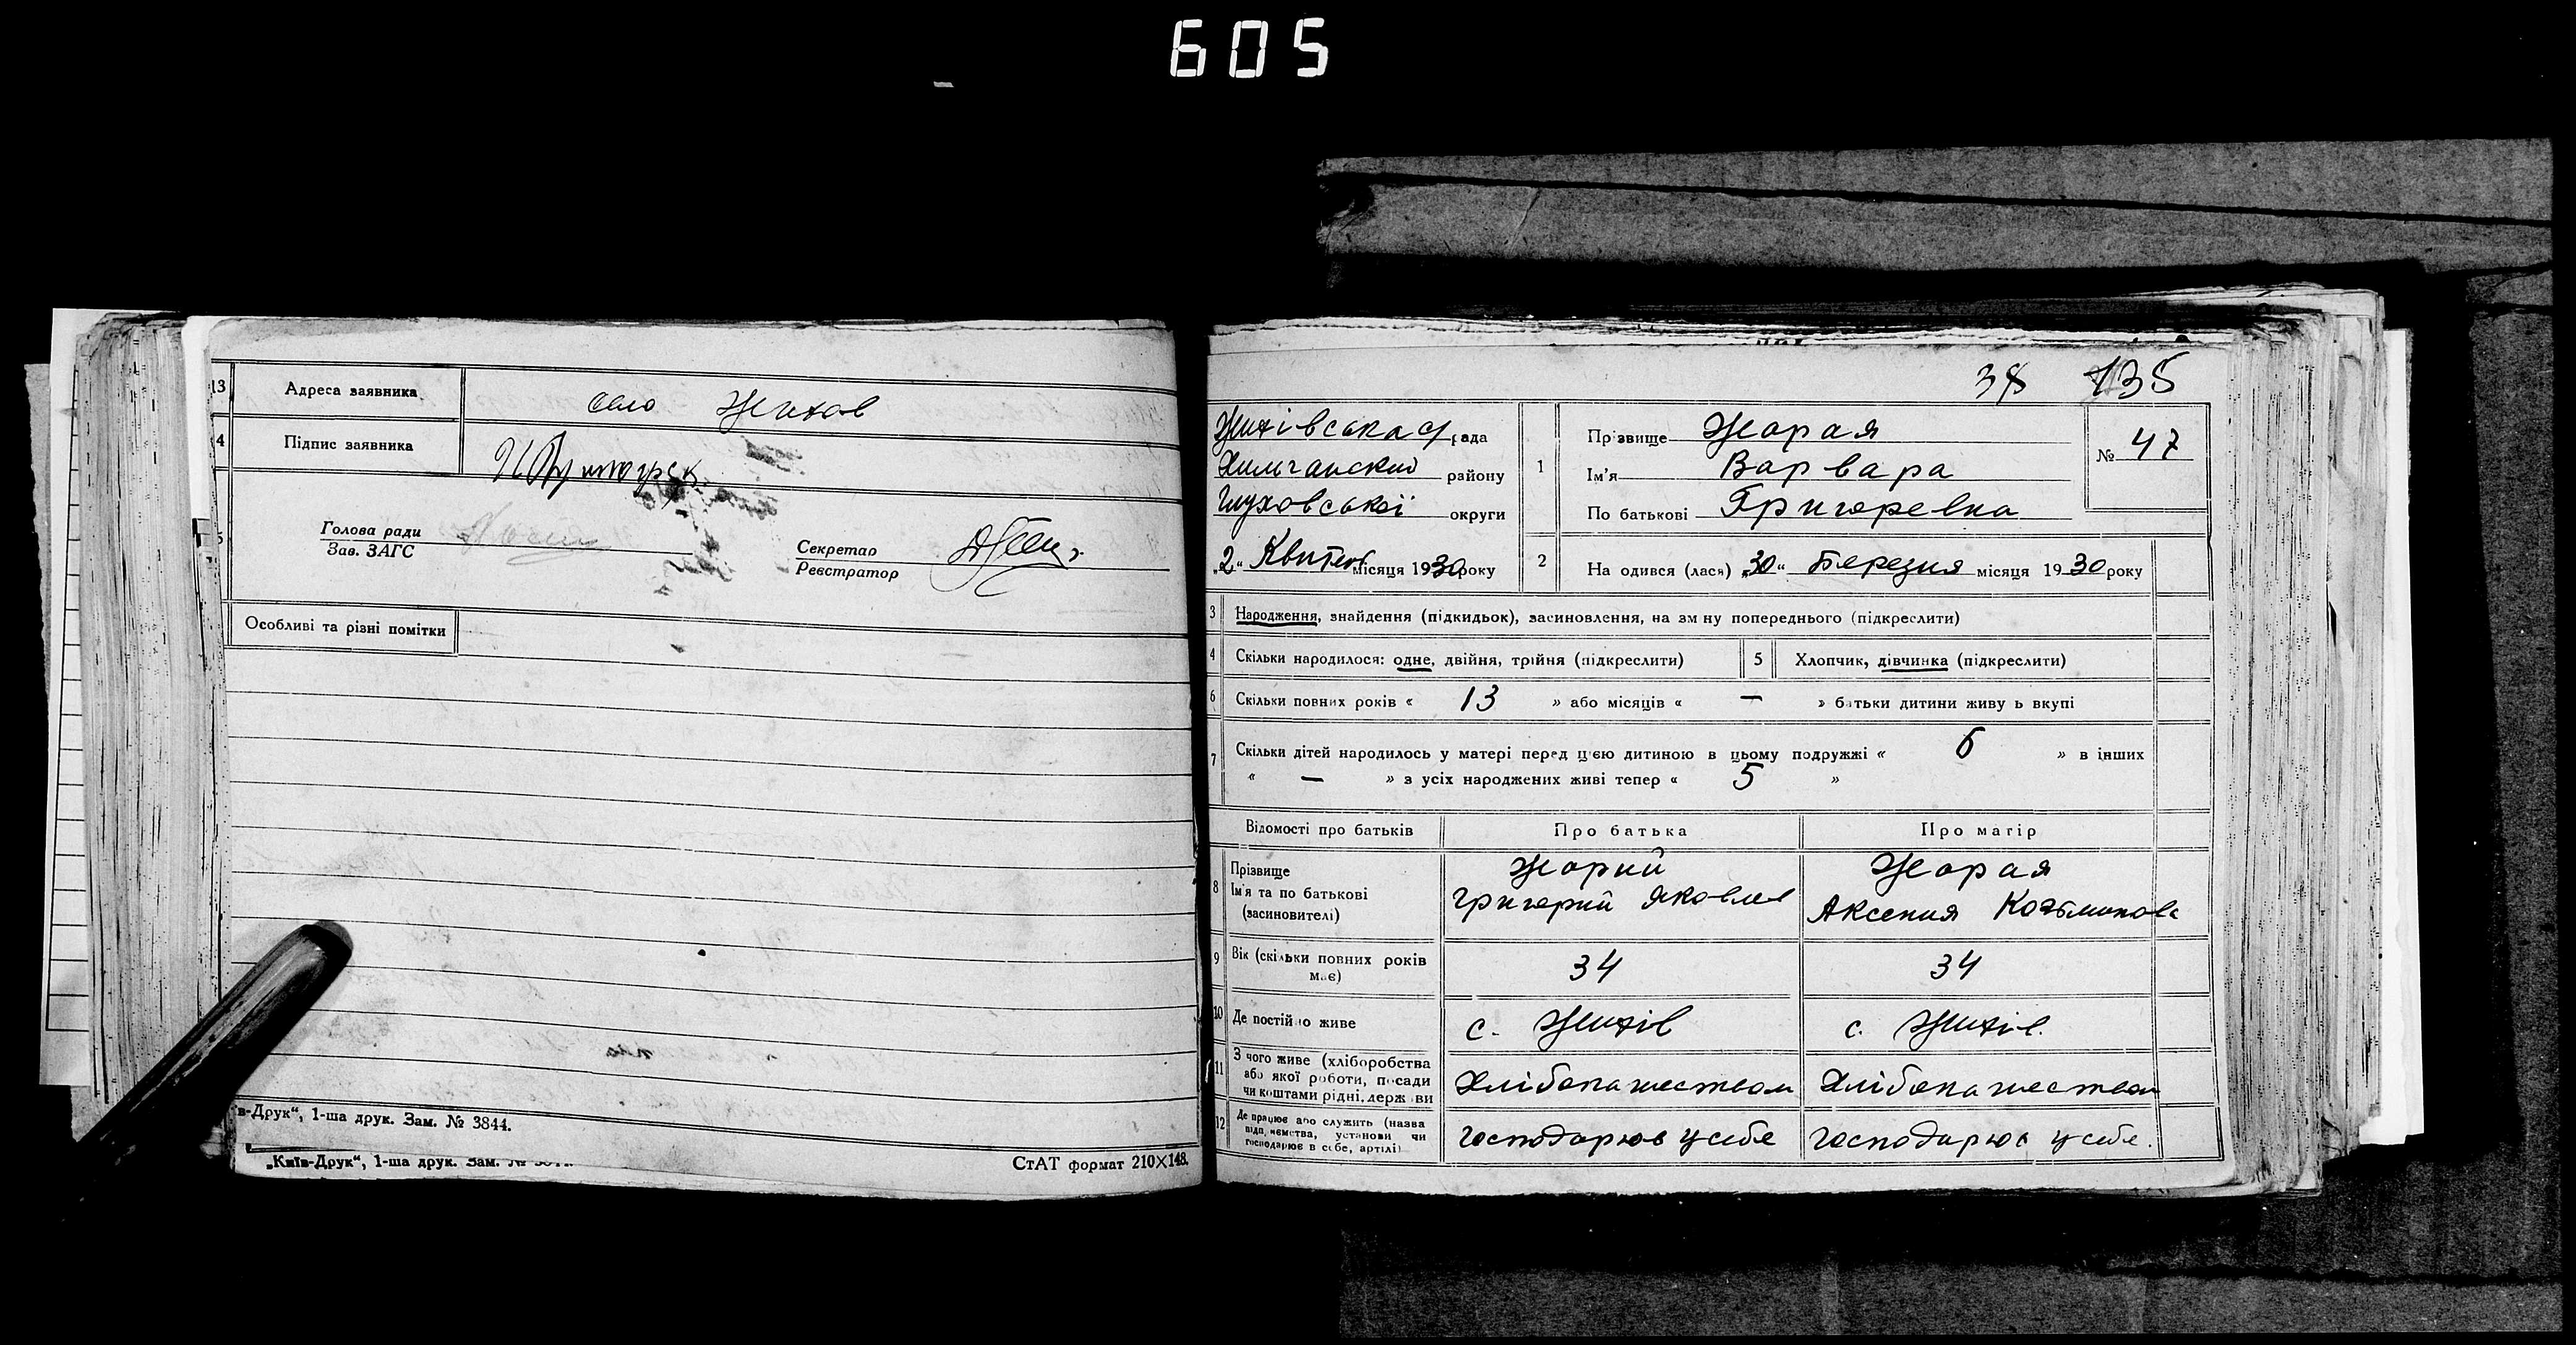 605
13 Адреса заявника село Жихов
4 Підпис заявника
Голова ради
Зав. ЗАГС
Секретар
Реєстратор
Особливі та різні помітки
в-Друк“, 1-ша друк. Зам. № 3844.
„Київ-Друк“, 1-ша друк. Зам. №
СтАТ формат 210×148.
38 135
Жихівська с/рада
Хильчанский району
Глуховської округи
„2“ Квітень місяця 1930 року
1 Прізвище Жарая
Ім'я Варвара
По батькові Григоревна
№ 47
2 На одився (лася) „30“ Березня місяця 1930 року
3 Народження, знайдення (підкидьок), засиновлення, на зм ну попереднього (підкреслити)
4 Скільки народилося: одне, двійня, трійня (підкреслити) 5 Хлопчик, дівчинка (підкреслити)
6 Скільки повних років « 13 » або місяців « — » батьки дитини живу ь вкупі
7 Скільки дітей народилось у матері перед цією дитиною в цьому подружжі « 6 » в інших
« — » з усіх народжених живі тепер « 5 »
Відомості про батьків Про батька Про матір
8 Прізвище Жарий Жарая
Ім'я та по батькові Григорий Яковлев Аксения Козьминова
(засиновителі)
9 Вік (скільки повних років має) 34 34
10 Де постійно живе с. Жихів с. Жихів.
11 З чого живе (хліборобства або якої роботи, посади чи коштами рідні, держ ви Хлібопашеством Хлібопашеством
12 Де працює або служить (назва підп иємства, установи чи господарює в себе, артілі) господарює у себе господарює у себе.